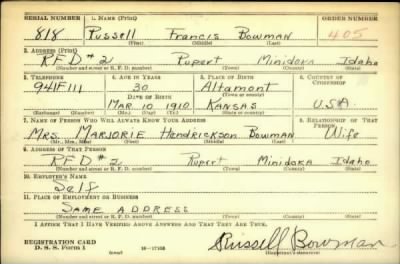 SERIAL NUMBER 1. NAME (Print) ORDER NUMBER
818 Russell Francis Bowman 405
(First) (Middle) (Last)
2. ADDRESS (Print)
RFD #2 Rupert Minidoka Idaho
(Number and street or R. F. D. number) (Town) (County) (State)
3. TELEPHONE 4. AGE IN YEARS 5. PLACE OF BIRTH 6. COUNTRY OF CITIZENSHIP
94F111 30 Altamont
DATE OF BIRTH (Town or county)
MAR. 10 1910 KANSAS USA
(Exchange) (Number) (Mo.) (Day) (Yr.) (State or country)
7. NAME OF PERSON WHO WILL ALWAYS KNOW YOUR ADDRESS 8. RELATIONSHIP OF THAT PERSON
MRS. MARJORIE HENDRICKSON BOWMAN Wife
(Mr., Mrs., Miss) (First) (Middle) (Last)
9. ADDRESS OF THAT PERSON
RFD #2 Rupert Minidoka Idaho
(Number and street or R. F. D. number) (Town) (County) (State)
10. EMPLOYER'S NAME
Self
11. PLACE OF EMPLOYMENT OR BUSINESS
SAME ADDRESS
(Number and street or R. F. D. number) (Town) (County) (State)
I AFFIRM THAT I HAVE VERIFIED ABOVE ANSWERS AND THAT THEY ARE TRUE.
REGISTRATION CARD
D. S. S. Form 1 (over) Russell Bowman
(Registrant's signature)